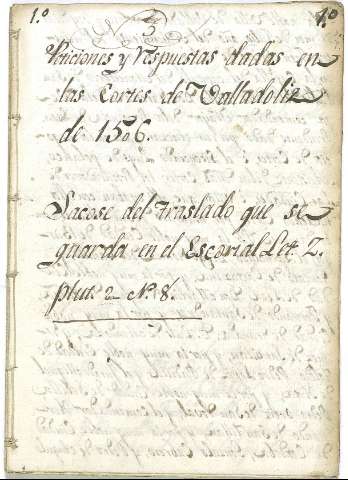 1.º 3 1.º
Peticiones y respuestas dadas en
las Cortes de Valladolid
de 1506.
Sacose del traslado que se
guarda en el Escorial Let. Z.
plut. 2 N.º 8.